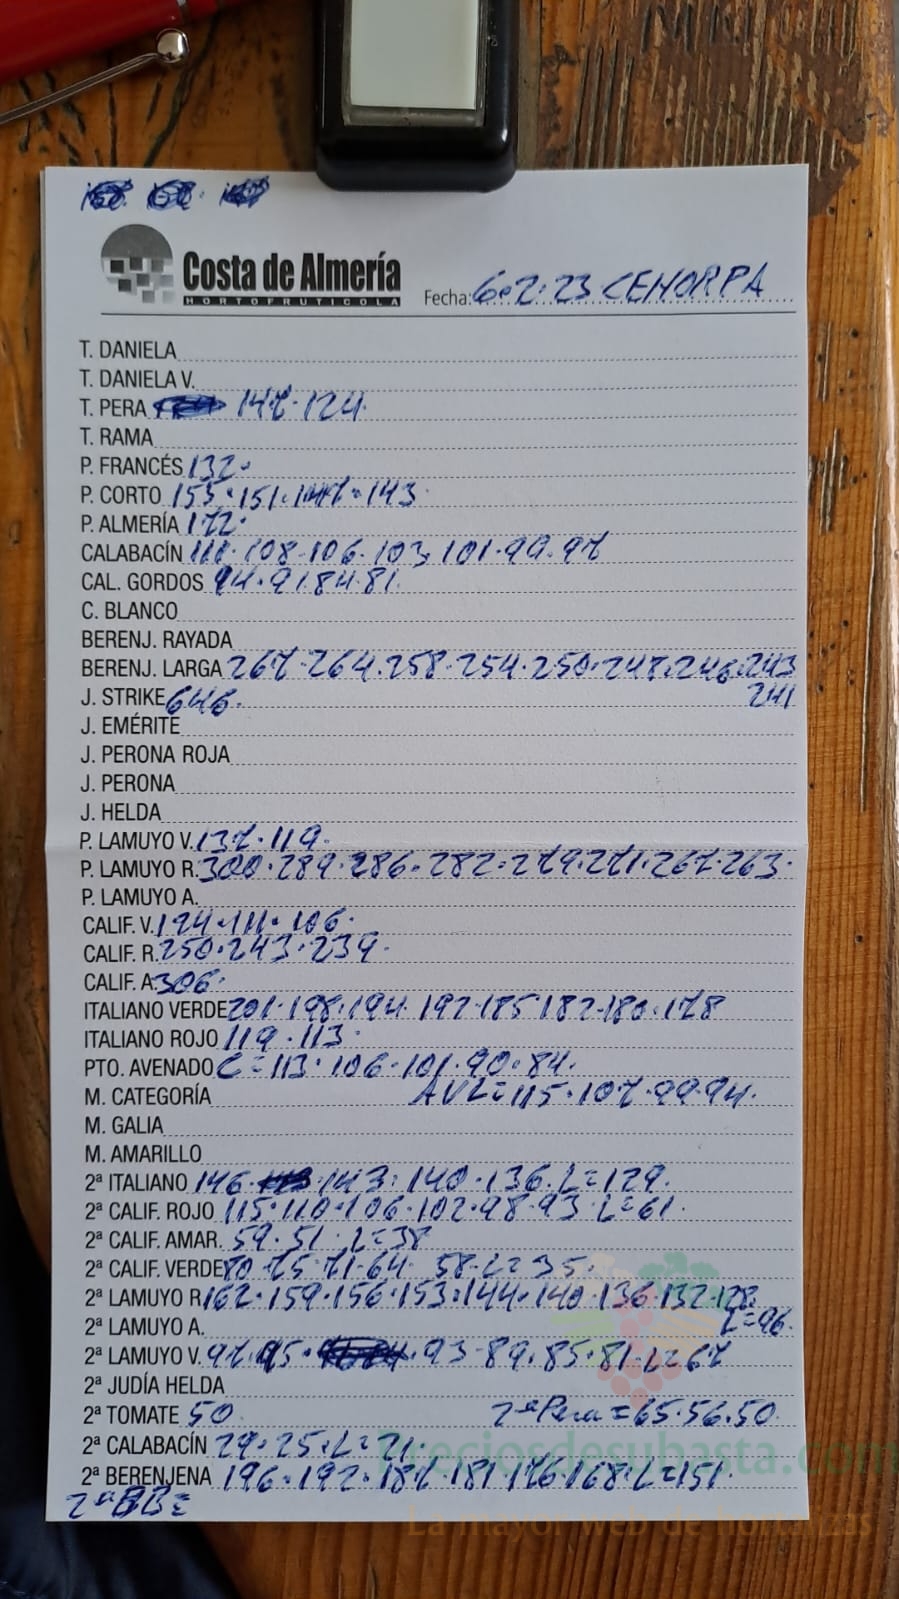 Costa de Almería
HORTOFRUTICOLA
Fecha: 6·2·23 CEHORPA
T. DANIELA
T. DANIELA V.
T. PERA 147·124·
T. RAMA
P. FRANCÉS 132·
P. CORTO 155·151·147·143·
P. ALMERÍA 172·
CALABACÍN 111·108·106·103·101·99·97
CAL. GORDOS 94·91·84·81·
C. BLANCO
BERENJ. RAYADA
BERENJ. LARGA 267·264·258·254·250·248·246·243
241
J. STRIKE 646·
J. EMÉRITE
J. PERONA ROJA
J. PERONA
J. HELDA
P. LAMUYO V. 137·119·
P. LAMUYO R. 300·289·286·282·279·271·267·263·
P. LAMUYO A.
CALIF. V. 124·111·106·
CALIF. R. 250·243·239·
CALIF. A. 306·
ITALIANO VERDE 201·198·194·192·185·182·180·178
ITALIANO ROJO 119·113·
PTO. AVENADO C=113·106·101·90·84·
AVL=115·107·99·94·
M. CATEGORÍA
M. GALIA
M. AMARILLO
2ª ITALIANO 146·143·140·136·L=129·
2ª CALIF. ROJO 115·110·106·102·98·93·L=61·
2ª CALIF. AMAR. 59·51·L=38
2ª CALIF. VERDE 80·75·71·64·58·L=35·
2ª LAMUYO R. 162·159·156·153·144·140·136·132·128
L=96·
2ª LAMUYO A.
2ª LAMUYO V. 97·95·93·89·85·81·L=67
2ª JUDÍA HELDA
2ª TOMATE 50 2ªPera=65·56·50·
2ª CALABACÍN 29·25·L=21·
2ª BERENJENA 196·192·187·181·176·168·L=151·
2ªBB=
Preciosdesubasta.com
La mayor web de hortalizas